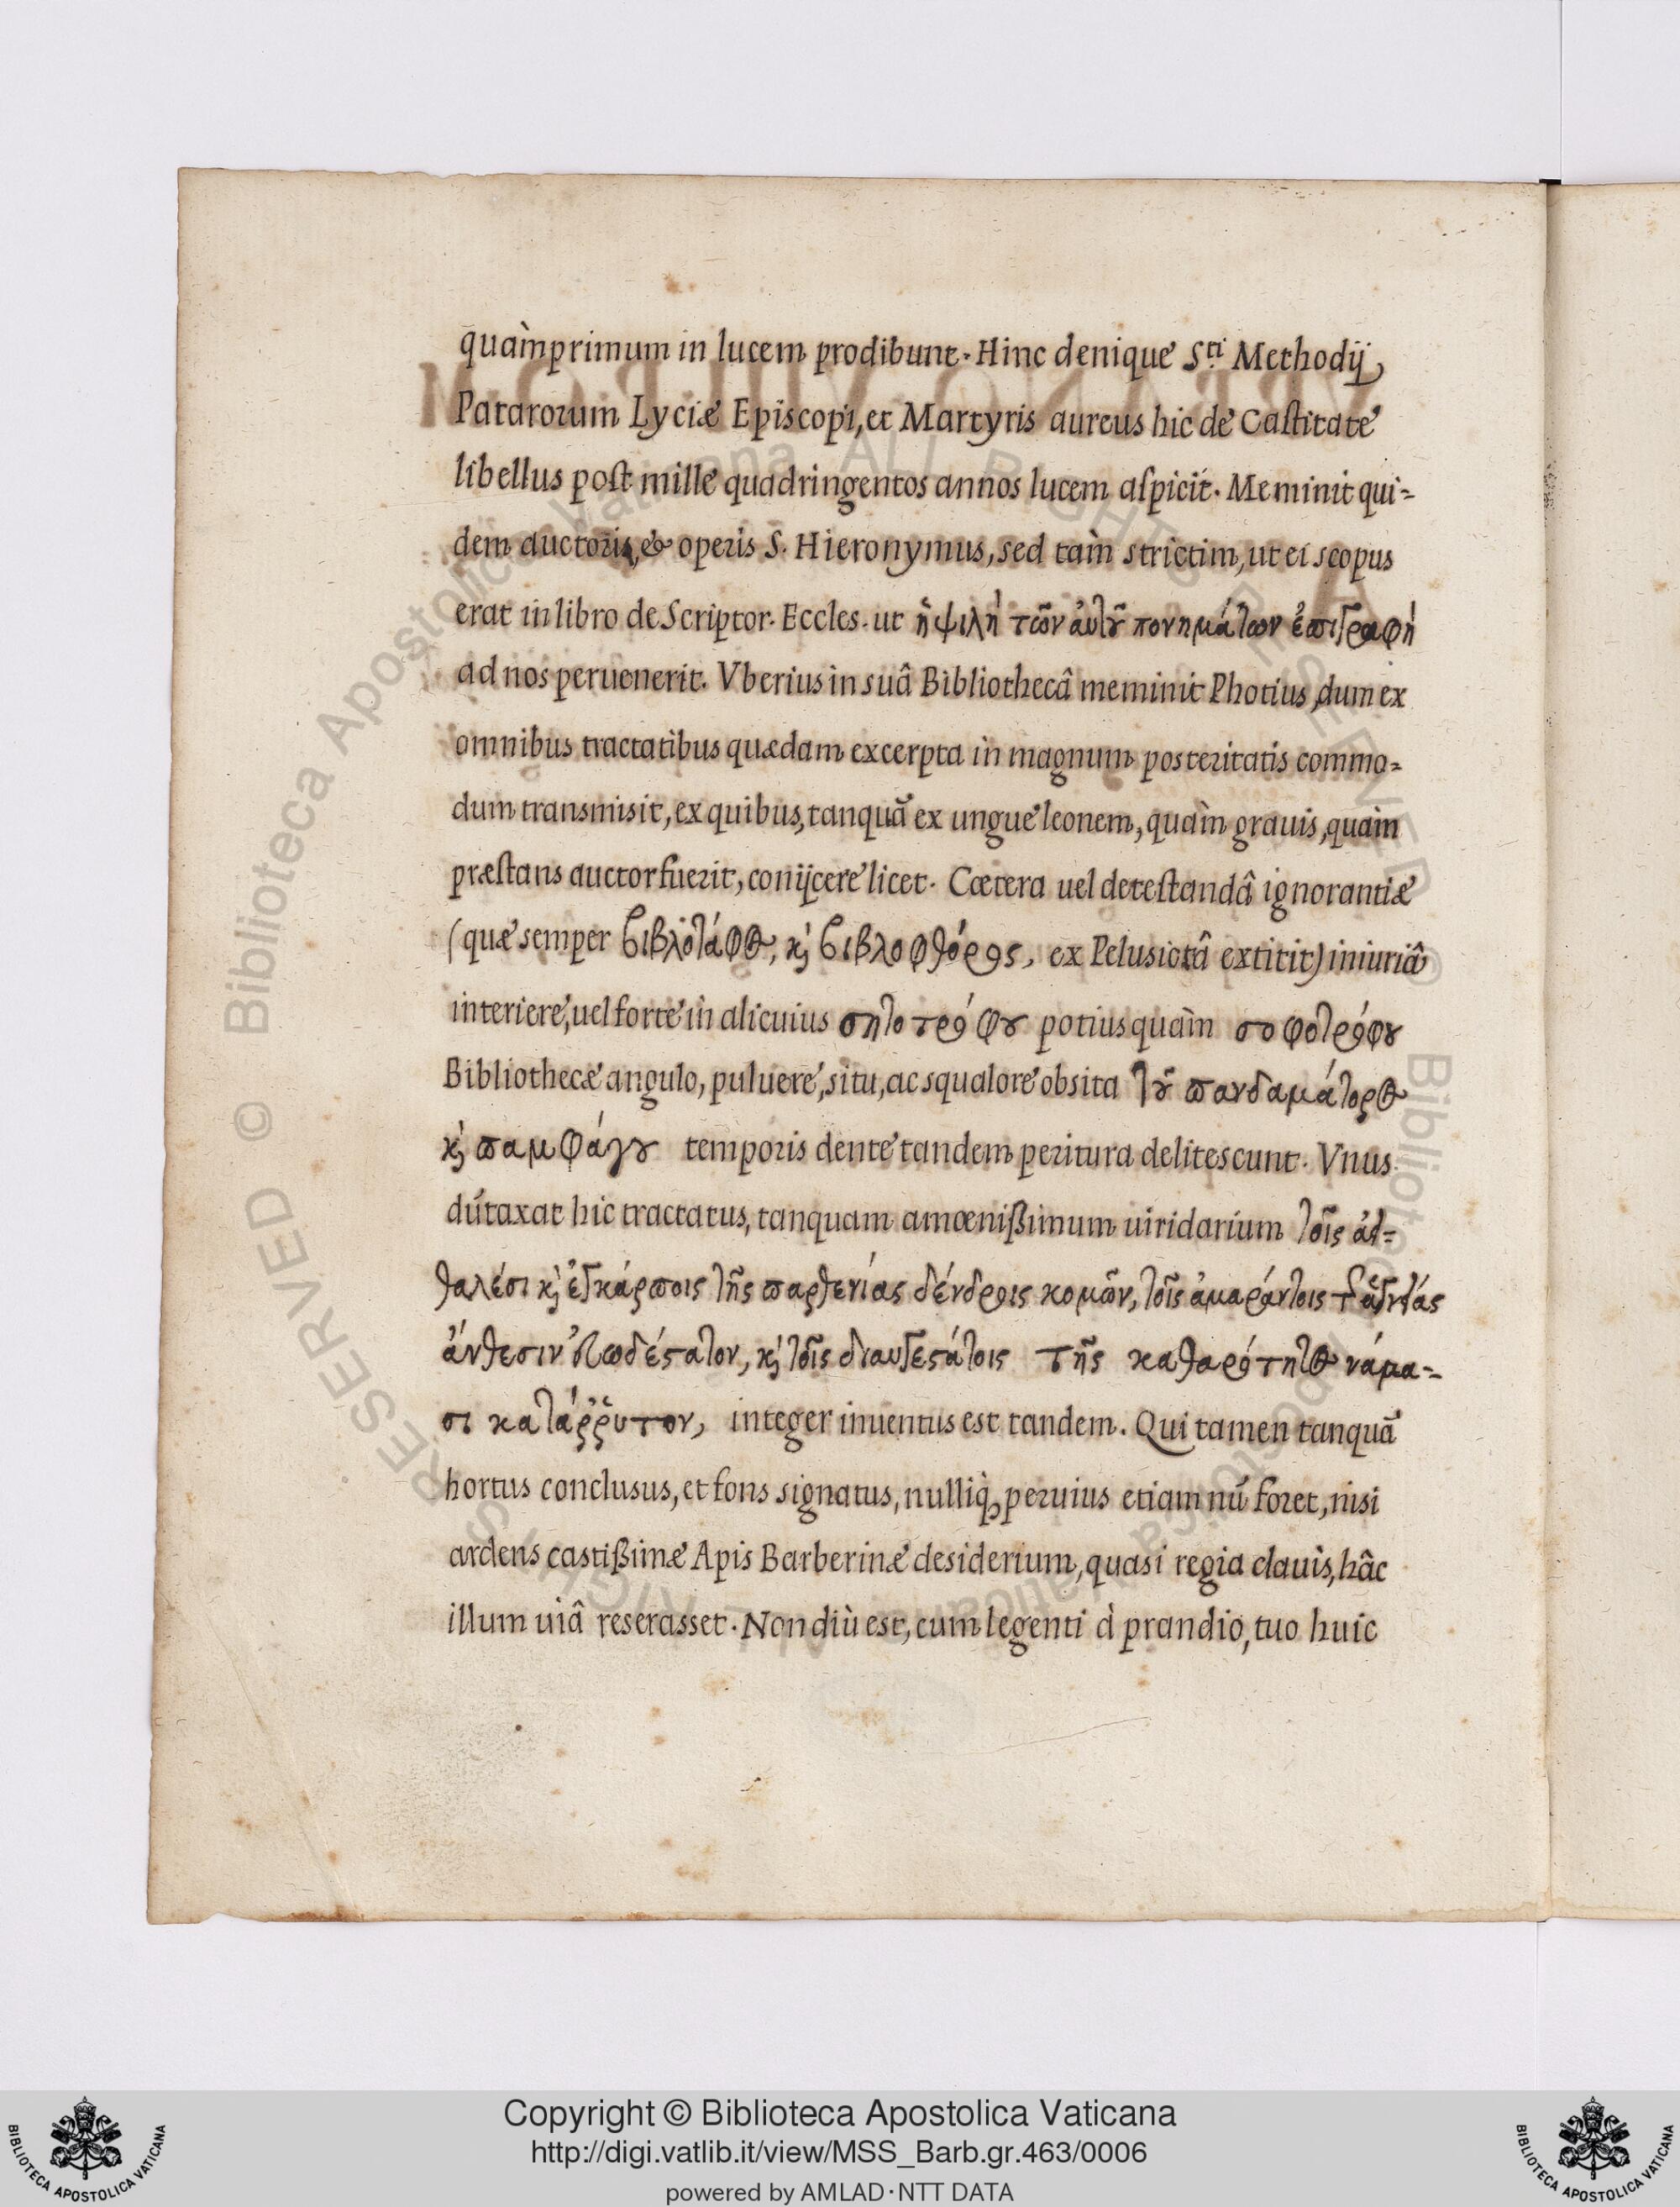 quàmprimum in lucem prodibunt. Hinc denique S.ti Methodij
Patarorum Lyciæ Episcopi, et Martyris aureus hic de Castitate
libellus post mille quadringentos annos lucem aspicit. Meminit qui-
dem auctoris, & operis S. Hieronymus, sed tam strictim, ut ei scopus
erat in libro de Scriptor. Eccles. ut ἡ ψιλὴ τῶν αὐτοῦ πονημάτων ἐπιγραφὴ
ad nos peruenerit. Vberius in suâ Bibliothecâ meminit Photius, dum ex
omnibus tractatibus quædam excerpta in magnum posteritatis commo-
dum transmisit, ex quibus, tanquã ex ungue leonem, quàm grauis, quàm
præstans auctor fuerit, conijcere licet. Cœtera uel detestandâ ignorantiæ
(quæ semper βιβλοτάφος, καὶ βιβλοφθόρος, ex Pelusiotâ extitit) iniuriâ
interiere, uel forte in alicuius σητοτρόφου potius quàm σοφοτρόφου
Bibliothecæ angulo, puluere, situ, ac squalore obsita τοῦ πανδαμάτορος
καὶ παμφάγου temporis dente tandem peritura delitescunt. Vnus
dūtaxat hic tractatus, tanquam amœnißimum uiridarium τοῖς ἀει-
θαλέσι καὶ εὐκάρποις τῆς παρθενίας δένδροις κομῶν, τοῖς ἀμαράντοις τῆς ἁγνείας
ἄνθεσιν εὐωδέστατον, καὶ τοῖς διαυγεστάτοις τῆς καθαρότητος νάμα-
σι κατάῤῥυτον, integer inuentus est tandem. Qui tamen tanquã
hortus conclusus, et fons signatus, nulliq; peruius etiam nū foret, nisi
ardens castißimæ Apis Barberinæ desiderium, quasi regia clauis, hâc
illum uiâ reserasset. Non diù est, cum legenti à prandio, tuo huic
Copyright © Biblioteca Apostolica Vaticana
http://digi.vatlib.it/view/MSS_Barb.gr.463/0006
powered by AMLAD·NTT DATA